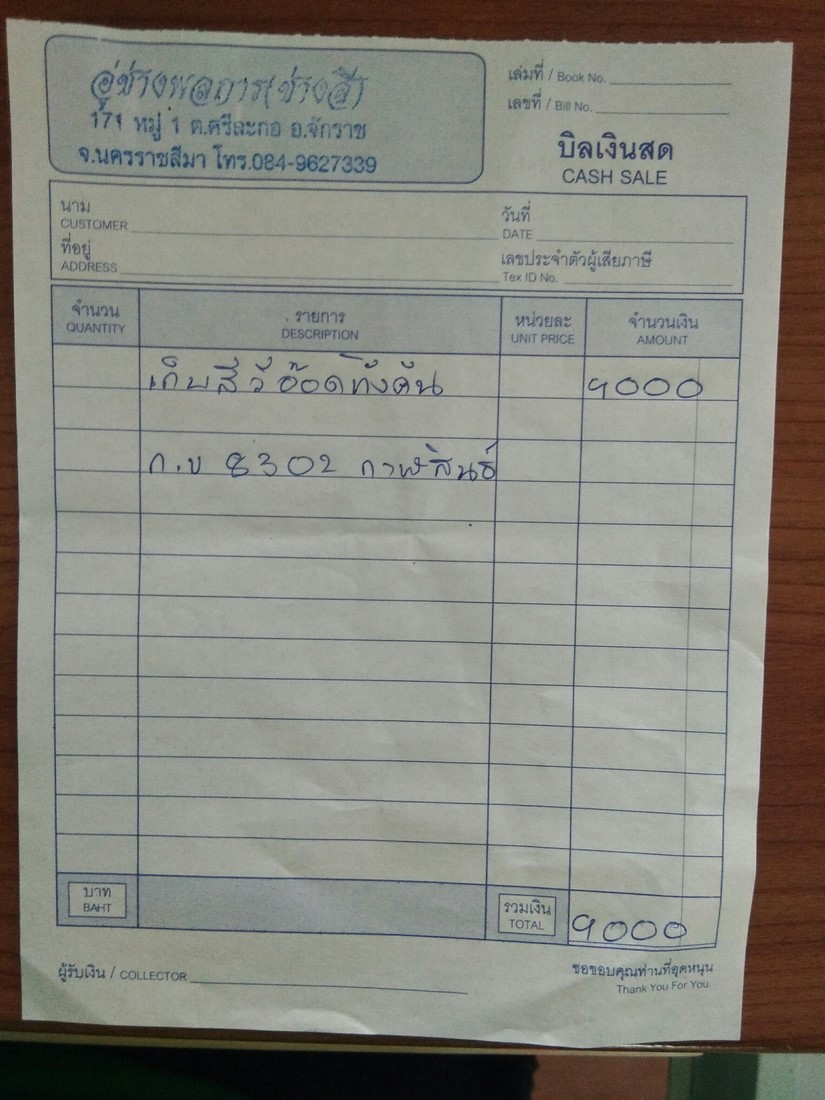 อู่ช่างพลการ(ช่างสี)
171 หมู่ 1 ต.ศรีละกอ อ.จักราช
จ.นครราชสีมา โทร.084-9627339
เล่มที่ / Book No.
เลขที่ / Bill No.
บิลเงินสด
CASH SALE
นาม
CUSTOMER
วันที่
DATE
ที่อยู่
ADDRESS
เลขประจำตัวผู้เสียภาษี
Tex ID No.
จำนวน รายการ หน่วยละ จำนวนเงิน
QUANTITY DESCRIPTION UNIT PRICE AMOUNT
เก็บสีวีอ๊อดทั้งคัน 9000
ก.ข 8302 กาฬสินธ์
บาท
BAHT
รวมเงิน
TOTAL
9000
ผู้รับเงิน / COLLECTOR
ขอขอบคุณท่านที่อุดหนุน
Thank You For You.